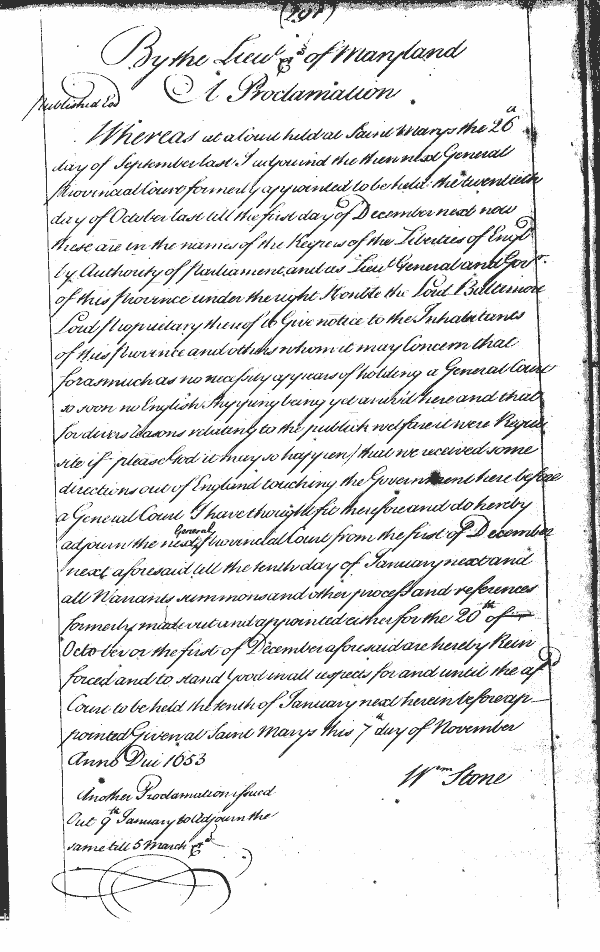 By the Lieut &c of Maryland
A Proclamation
Published Eod
Whereas at a Court held at Saint Marys the 26th
day of September last I adjourned the then next General
Provincial Court formerly appointed to be held the twentieth
day of October last till the first day of December next now
these are in the names of the Keepers of the Liberties of Engld
by Authority of Parliament, and as Lieut General and Govr
of this Province under the right Honble the Lord Baltemore
Lord Proprietary thereof to Give notice to the Inhabitants
of this Province and others whom it may Concern that
forasmuch as no necessity appears of holding a General Court
so soon no English Shipping being yet arrived here and that
for divers reasons relating to the publick welfare it were Requi
site if pleased God it may so happen) that we received some
directions out of England touching the Government here before
a General Court I have thought fit therefore and do hereby
adjourn the next General Provincial Court from the first of December
next aforesaid till the tenth day of January next and
all Warrants summons and other process and references
formerly made out and appointed either for the 20th of
October or the first of December aforesaid are hereby Rein
forced and to stand Good in all respects for and until the afd
Court to be held the tenth of January next herein before ap
pointed Given at Saint Marys this 7th day of November
Anno Dni 1653
Wm Stone
Another Proclamation issued
Out 9th January to Adjourn the
same till 5 March &c